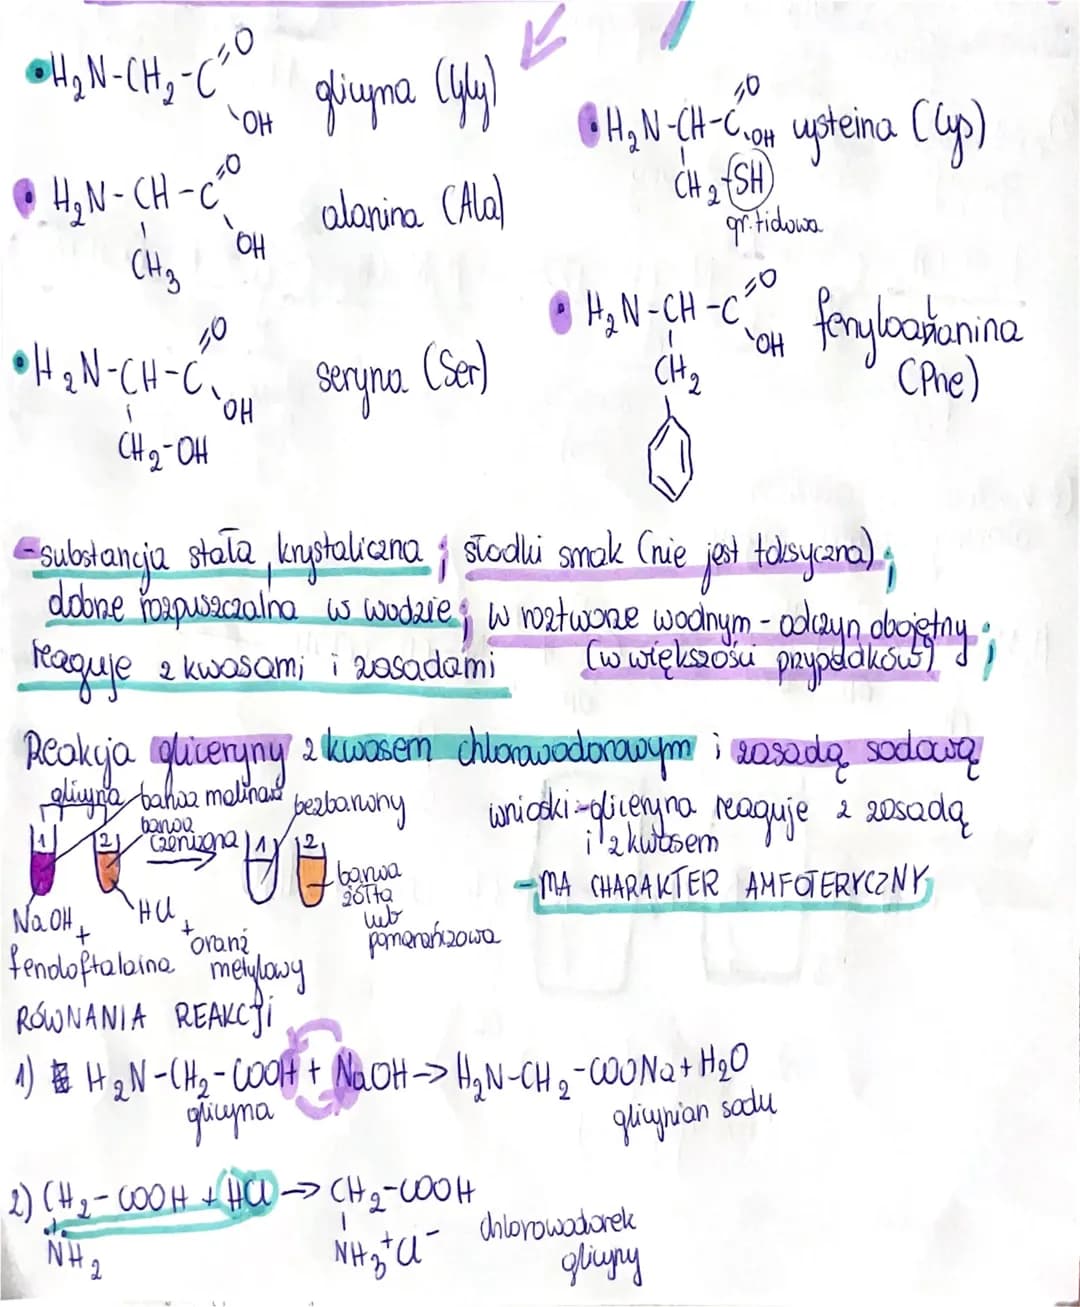 •H₂N-CH₂-C=O
OH
glicyna (Gly)
• H₂N-CH-C=O
OH
CH₃
alanina (Ala)
•H₂N-CH-C=O
OH
CH₂-OH
seryna (Ser)
•H₂N-CH-C=O
OH
cysteina (Cys)
CH₂-SH
gr. tidowa
• H₂N-CH-C=O
OH
CH₂
fenyloalanina
(Phe)
-substancja stała, krystaliczna ; słodki smak (nie jest toksyczna) ;
dobrze rozpuszczalna w wodzie ; w roztworze wodnym - odczyn obojętny ;
(w większości przypadków)
reaguje z kwasami i zasadami
Reakcja gliceryny z kwasem chlorowodorowym i zasadą sodową
glicyna
barwa malinowa
barwa czerwona
1) 2)
bezbarwny
1) 2)
barwa
żółta
lub
pomarańczowa
NaOH +
fenoloftaleina
HCl +
oranż
metylowy
wnioski:-gliceryna reaguje z zasadą
i z kwasem
-MA CHARAKTER AMFOTERYCZNY
RÓWNANIA REAKCJI
1) H₂N-CH₂-COOH + NaOH → H₂N-CH₂-COONa + H₂O
glicyna
glicynian sodu
2) CH₂-COOH + HCl → CH₂-COOH
NH₂
NH₃⁺Cl⁻
chlorowodorek
glicyny